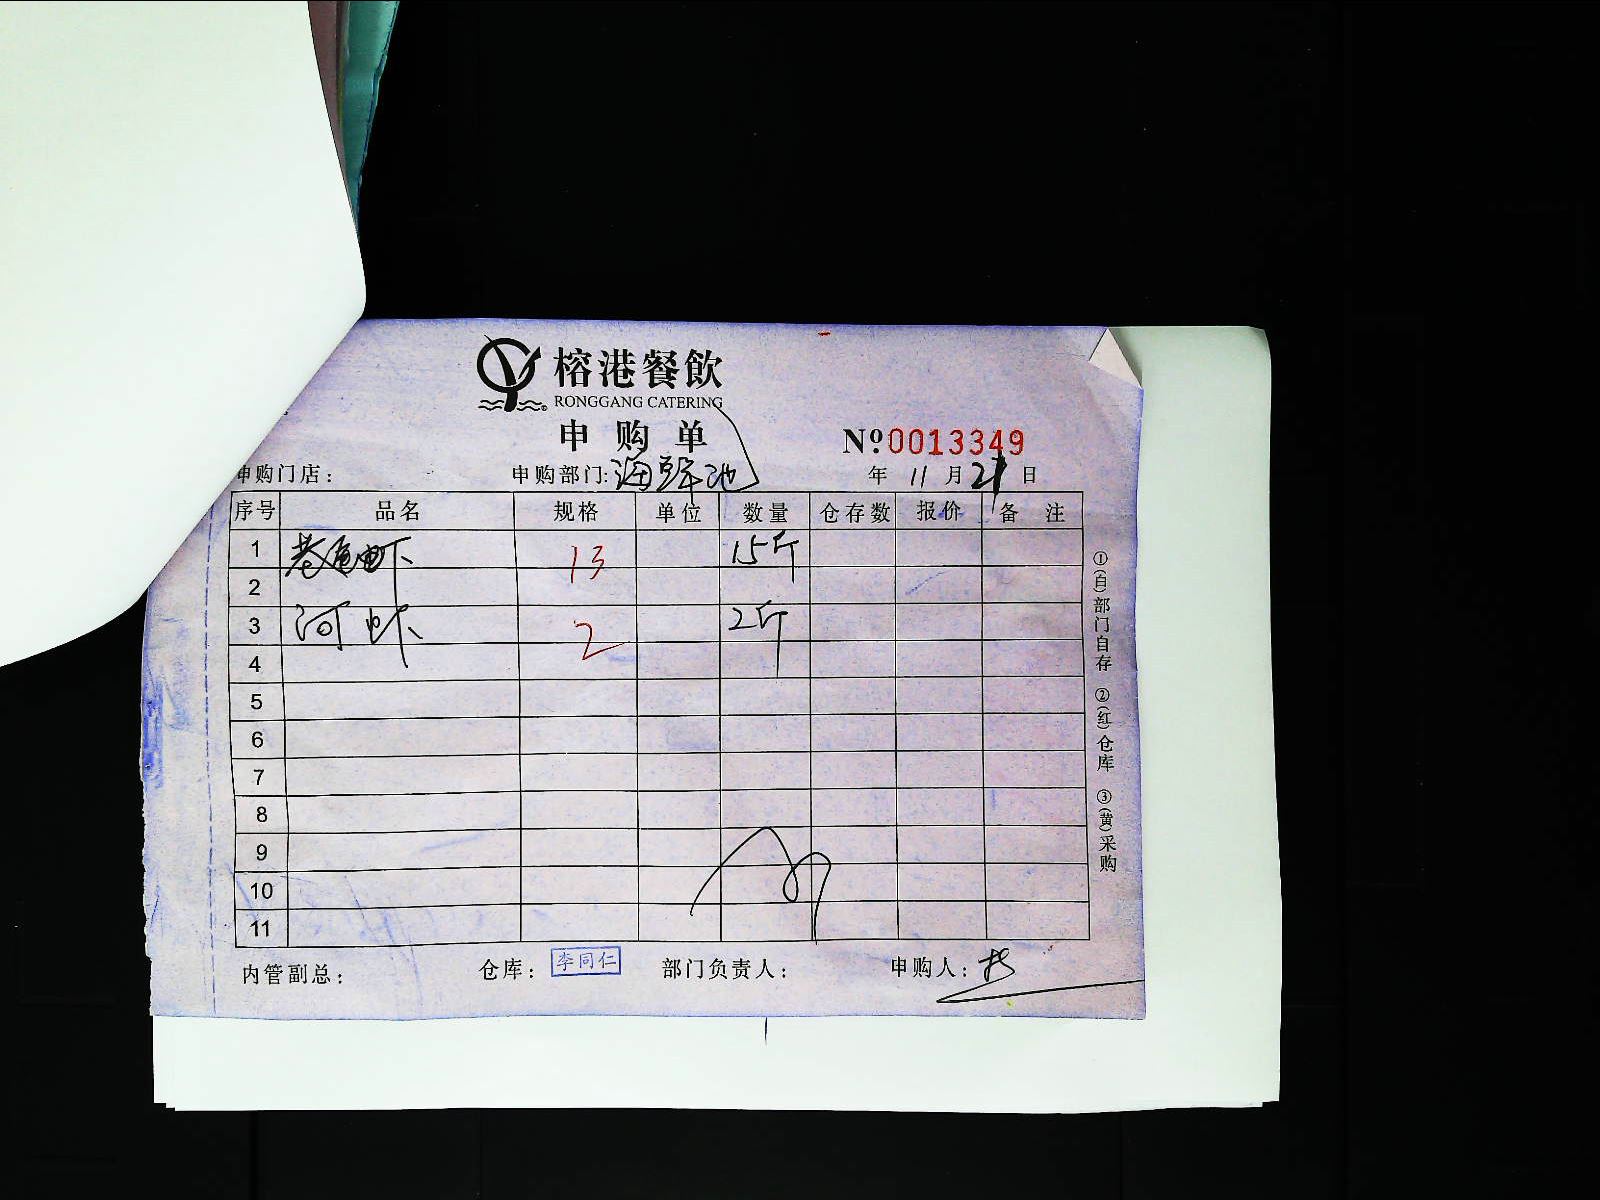 榕港餐飲
RONGGANG CATERING
申购单
№0013349
申购门店： 申购部门:海鲜池 年 11 月 21 日
序号 品名 规格 单位 数量 仓存数 报价 备注
1 虾 13 15斤
2
3 河虾 2 2斤
4
5
6
7
8
9
10
11
内管副总： 仓库：李同仁 部门负责人： 申购人：
①(白)部门自存 ②(红)仓库 ③(黄)采购